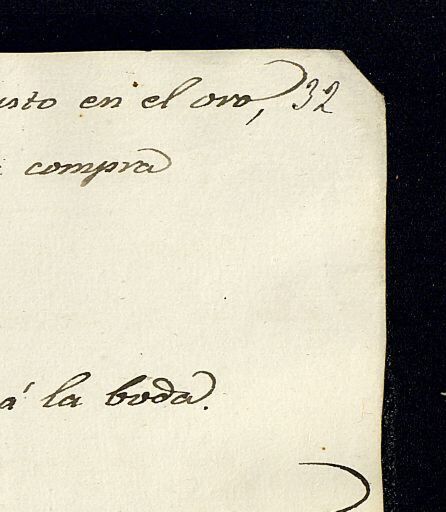 en el oro, 32
compra
á la boda.